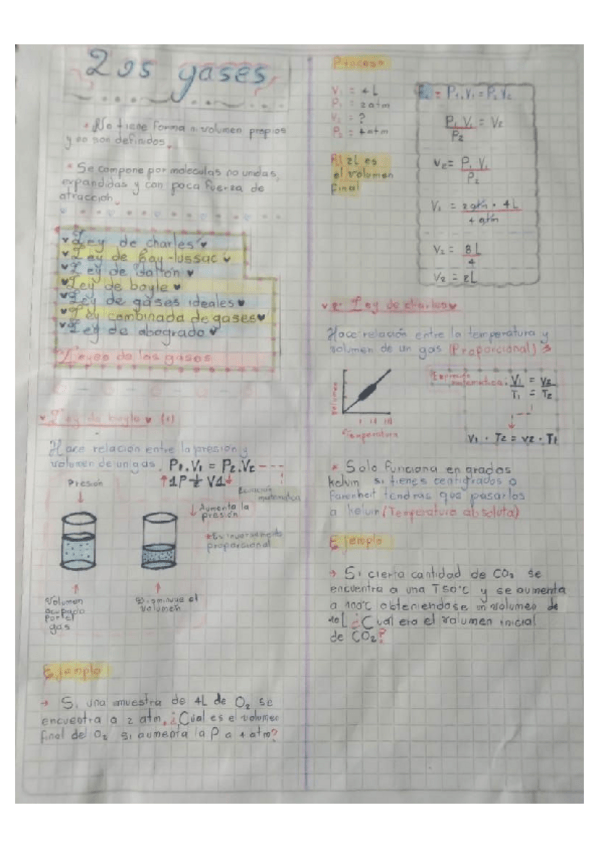 Los gases
* No tiene forma ni volumen propios
y no son definidos.
* Se compone por moleculas no unidas,
expandidas y con poca fuerza de
atracción.
Ley de charles
Ley de Gay-lussac
Ley de dalton
Ley de boyle
Ley de gases ideales
Ley combinada de gases
Ley de abogrado
Leyes de los gases
Ley de boyle (1)
Hace relación entre la presion y
volumen de un gas. P1.V1 = P2.V2
Presión
Aumenta la
presión
* Es inversamente
proporcional
Volumen
ocupado
por el
gas
Disminuye el
volumen
Ejemplo:
→ Si una muestra de 4L de O2 se
encuestra a 2 atm, ¿Cual es el volumen
final del O2 si aumenta la P a 4 atm?
Proceso
V1 = 4L
P1 = 2 atm
V2 = ?
P2 = 4 atm
R/ 2L es
el volumen
final
P1.V1 = P2.V2
P1 V1 = V2
P2
V2 = P1 V1
P2
V2 = 2 atm * 4L
4 atm
V2 = 8L
4
V2 = 2L
2 Ley de charles
Hace relación entre la temperatura y
volumen de un gas (Proporcional)
Temperatura
matematica: V1 = V2
T1 = T2
V1 · T2 = V2 · T1
* Solo funciona en grados
kelvin si tienes centigrados o
farenheit tendras que pasarlos
a kelvin (Temperatura absoluta)
Ejemplo
→ Si cierta cantidad de CO2 se
encuentra a una T 50°C y se aumenta
a 100°C obteniendose un volumen de
10L ¿Cual era el volumen inicial
de CO2?